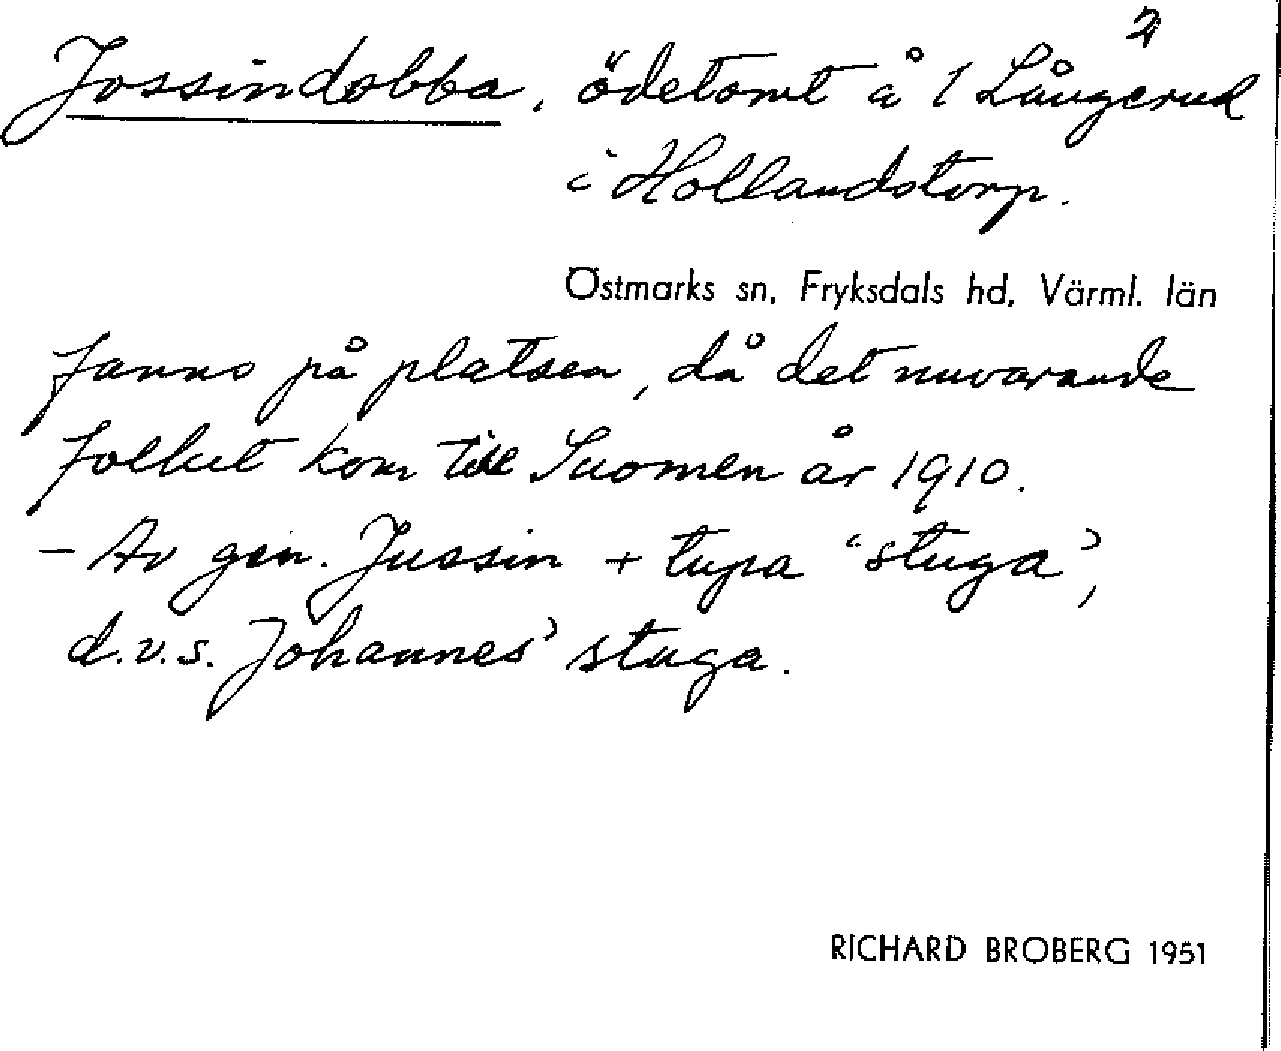 2
Jossindobba, ödetomt å 1 Långerud
i Hollandstorp.
Östmarks sn, Fryksdals hd, Värml. län
fanns på platsen, då det nuvarande
folket kom till Suomen år 1910.
– Av gen. Jussin + tupa 'stuga',
d.v.s. Johannes' stuga.
RICHARD BROBERG 1951